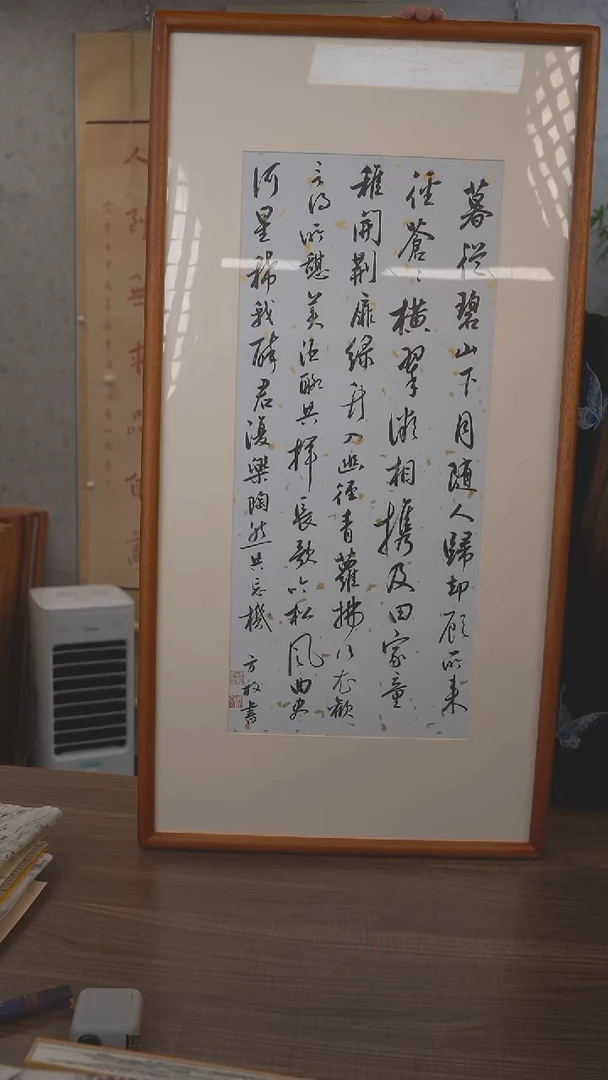 暮從碧山下月随人歸却顧所来
徑蒼〻橫翠微相攜及田家童
稚開荊扉綠竹入幽徑青蘿拂行衣歡
言得所憩美酒聊共揮長歌吟松風曲尽
河星稀我醉君復樂陶然共忘機
方 書
人到無求品自高